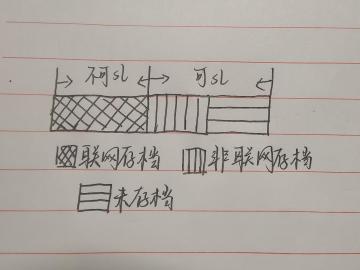 不可sl 可sl
联网存档 非联网存档
未存档